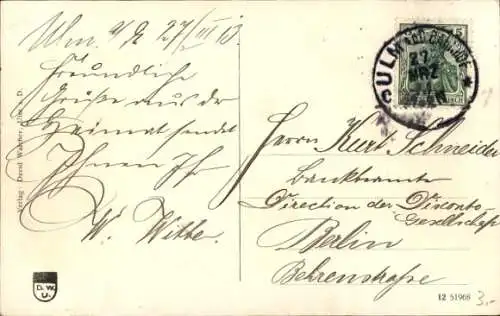 Ulm a/D 27/III 13.
Freundliche
Grüße aus der
Heimat sendet
Ihnen Ihr
W. Witte.
Herrn Kurt Schneider
Bankbeamter
Direction der Disconto-
Gesellschaft
Berlin
Behrenstraße
ULM
27
MRZ
5
Verlag: David Wachter, Ulm a. D.
D.W.
U.
12 51968
3.-